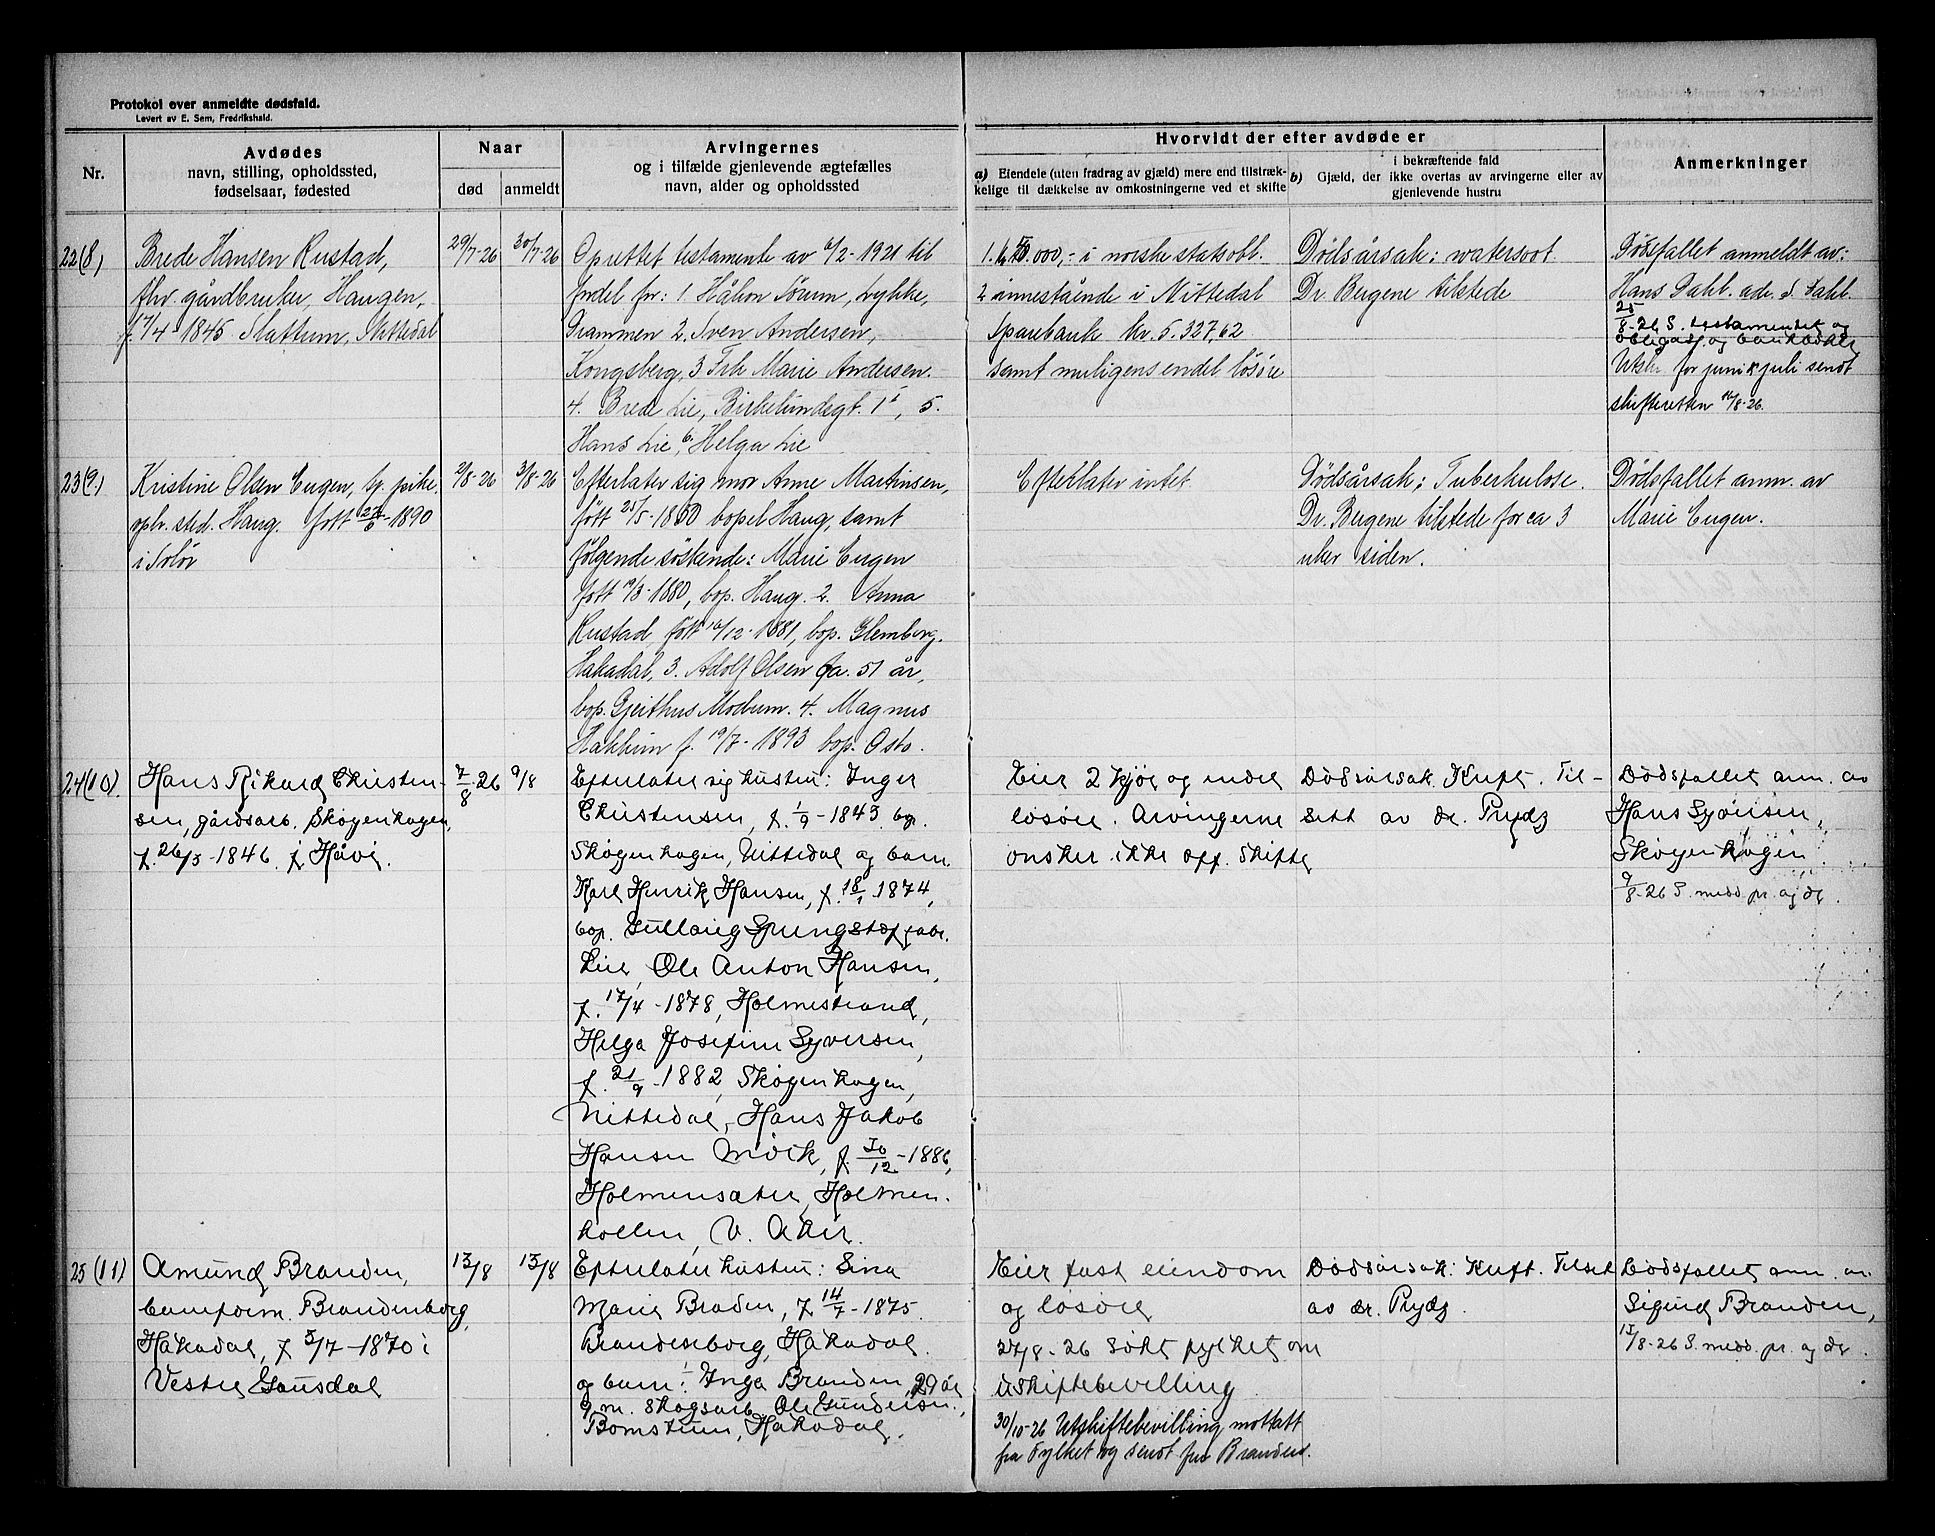 Protokol over anmeldte dødsfald.
Levert av E. Sem, Fredrikshald.
Nr.
Avdødes
navn, stilling, opholdssted,
fødselsaar, fødested
Naar
død
anmeldt
Arvingernes
og i tilfælde gjenlevende ægtefælles
navn, alder og opholdssted
Hvorvidt der efter avdøde er
a) Eiendele (uten fradrag av gjæld) mere end tilstræk-
kelige til dækkelse av omkostningerne ved et skifte
i bekræftende fald
b) Gjæld, der ikke overtas av arvingerne eller av
gjenlevende hustru
Anmerkninger
22(8)
Brede Hansen Rustad,
fhv. gårdbruker, Haugen,
f. 7/4-1845 Slattum, Nittedal
29/7-26
30/7-26
Oprettet testamente av 6/2-1921 til
fordel for: 1. Håkon Sørum, Lykke,
Drammen 2. Sven Andersen,
Kongsberg, 3 Frk Marie Andersen.
4. Brede Lie, Birkelundegt. 1, 5.
Hans Lie, 6. Helga Lie
i norske statsobl.
2 innestående i Nittedal
Sparebank kr. 5.327,62
samt muligens endel løsøre
Dödsårsak: watersoot.
Dr. Bergene tilstede
Dødsfallet anmeldt av:
Hans Dahl. adr. S. Dahl.
25/8-26 S. testamentet og
obligasj. og bankbok
Utskr for juni & juli sendt
skifteretten 14/8-26.
23(9)
Kristine Olsen Eugen, ug. pike.
oph. sted. Haug. født 27/6-1890
i Solør
2/8-26
3/8-26
Efterlater sig mor Anne Martinsen,
født 25/5-1850 bopel Haug, samt
følgende søskende: Marie Eugen
født 19/3-1880, bop. Haug. 2. Anna
Rustad, født 16/12-1881, bop. Glemberg.
Hakadal, 3. Adolf Olsen ca. 51 år,
bop. Gjeithus Modum. 4. Magnus
f. 19/7-1893 bop. Oslo.
Efterlater intet
Dödsårsak: Tuberkulose.
Dr. Bergene tilstede for ca 3
uker siden.
Dødsfallet anm. av
Marie Eugen.
24(10)
Hans Rikard Christen-
sen, gårdsarb. Skøyenhagen,
f. 26/3-1846. f Håvi.
7/8-26
9/8
Efterlater sig hustru: Inger
Christensen, f. 1/9-1843. bop.
Skøyenhagen, Nittedal og barn
Karl Henrik Hansen, f. 18/1-1874,
bop. Gullaug Sprengstoffabr.
Lier, Ole Anton Hansen,
f. 17/4-1878, Holmestrand,
Helga Josefine Syversen,
f. 21/9-1882, Skøyenhagen,
Nittedal, Hans Jakob
Hansen Mörk, f. 30/12-1886,
Holmensæter, Holmen-
kollen, V. Aker.
Eier 2 kjør og endel
løsøre. Arvingerne
ønsker ikke off. skifte
Dødsårsak Kreft. Til-
sett av dr. Prydz
Dødsfallet anm. av
Hans Syversen,
Skøyenhagen
9/8-26 S. medd. pr. og dr.
25(11)
Amund Branden,
banform. Brandenborg,
Hakadal, f 3/7-1870 i
Vestre Gausdal
13/8
13/8
Efterlater hustru: Sina
Marie Braden, f 14/7-1875.
Brandenborg, Hakadal.
og barn: 1 Inga Branden, 29 år
g. m. skogsarb. Ole Gundersen,
Bomstuen, Hakadal.
Eier fast eiendom
og løsøre
27/8-26 søkt fylket om
uskiftebevilling
30/10-26 Utskiftebevilling mottatt
fra Fylket og sendt fru Branden.
Dødsårsak: Kreft. Tilset
av dr. Prydz.
Dødsfallet anm. av
Sigurd Branden,
13/8-26 S. medd. pr. og dr.